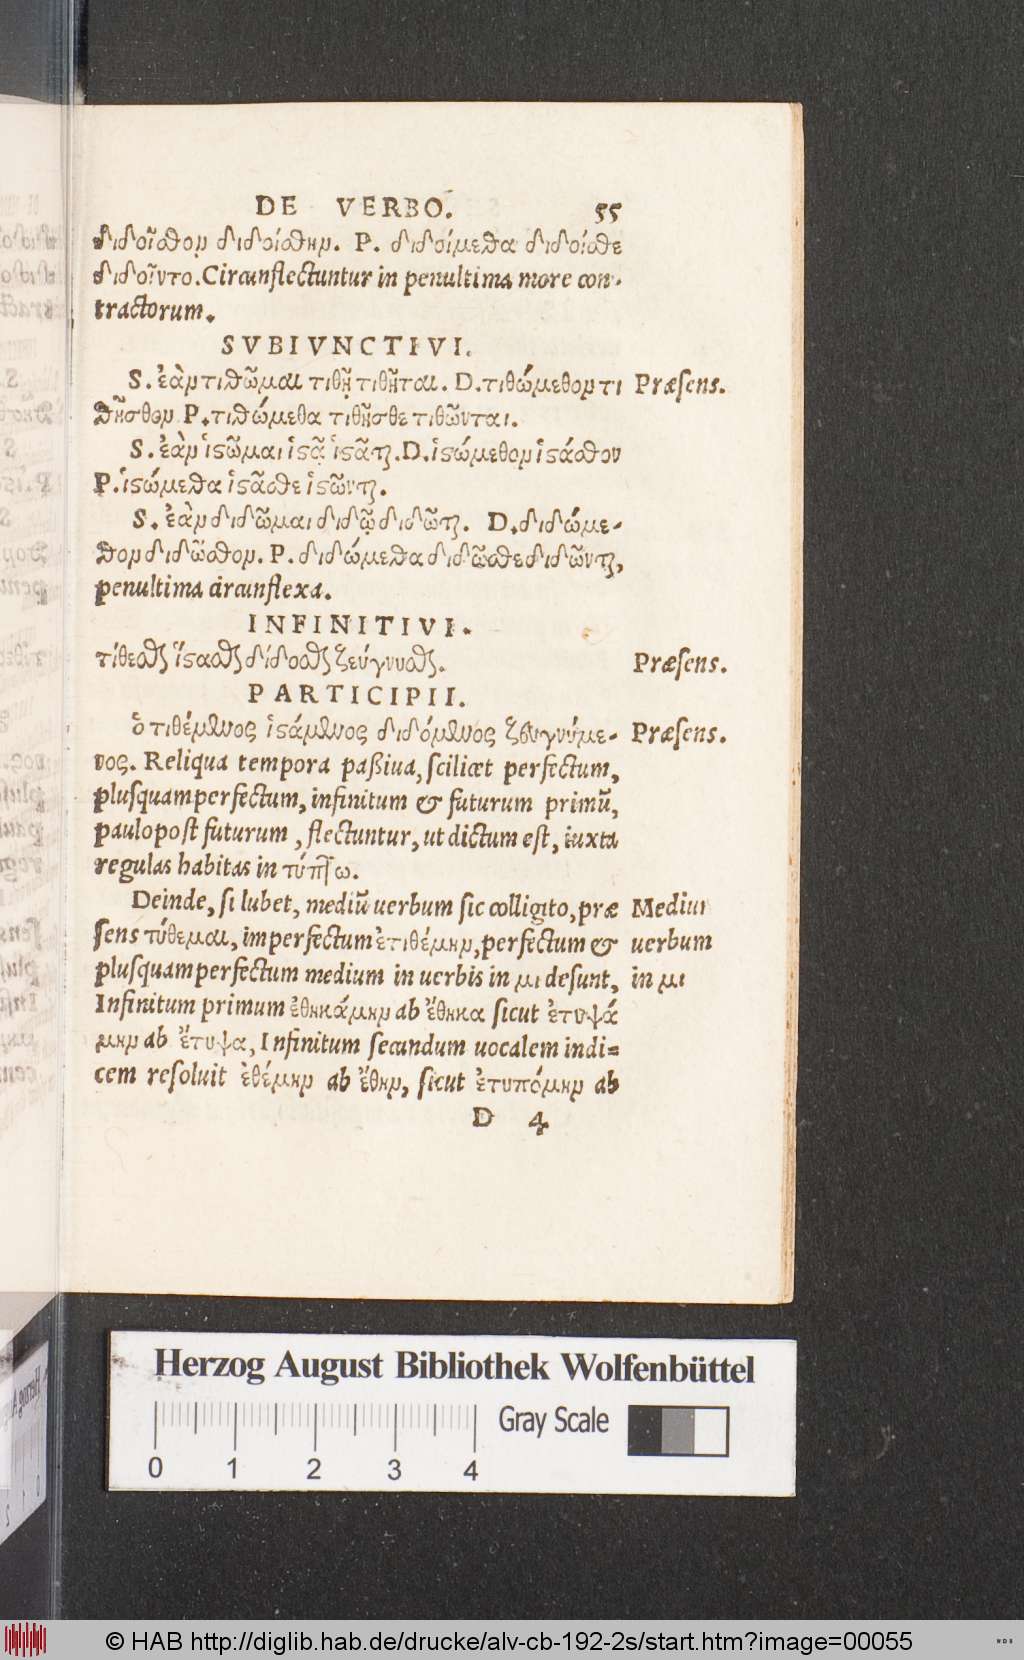 DE VERBO. 55
διδοῖσθον διδοίσθην. P. διδοίμεθα διδοίσθε
διδοῖντο. Circunflectuntur in penultima more con-
tractorum.
SVBIVNCTIVI.
S. ἐὰν τιθῶμαι τιθῇ τιθῆται. D. τιθώμεθον τι Præsens.
θῆσθον P. τιθώμεθα τιθῆσθε τιθῶνται.
S. ἐὰν ἱςῶμαι ἱςᾷ ἱςᾶται. D. ἱςώμεθον ἱςάσθον
P. ἱςώμεθα ἱςᾶσθε ἱςῶνται.
S. ἐὰν διδῶμαι διδῷ διδῶται. D. διδώμε-
θον διδῶσθον. P. διδώμεθα διδῶσθε διδῶνται,
penultima circunflexa.
INFINITIVI.
τίθεσθαι ἵςασθαι δίδοσθαι ζεύγνυσθαι. Præsens.
PARTICIPII.
ὁ τιθέμενος ἱςάμενος διδόμενος ζευγνύμε- Præsens.
νος. Reliqua tempora paßiua, scilicet perfectum,
plusquamperfectum, infinitum & futurum primũ,
paulopost futurum, flectuntur, ut dictum est, iuxta
regulas habitas in τύπτω.
Deinde, si lubet, mediũ uerbum sic colligito, præ Mediũ
sens τύθεμαι, imperfectum ἐτιθέμην, perfectum & uerbum
plusquamperfectum medium in uerbis in μι desunt, in μι
Infinitum primum ἐθηκάμην ab ἔθηκα sicut ἐτυψά
μην ab ἔτυψα, Infinitum secundum uocalem indi=
cem resoluit ἐθέμην ab ἔθην, sicut ἐτυπόμην ab
D 4
Herzog August Bibliothek Wolfenbüttel
Gray Scale
0 1 2 3 4
© HAB http://diglib.hab.de/drucke/alv-cb-192-2s/start.htm?image=00055